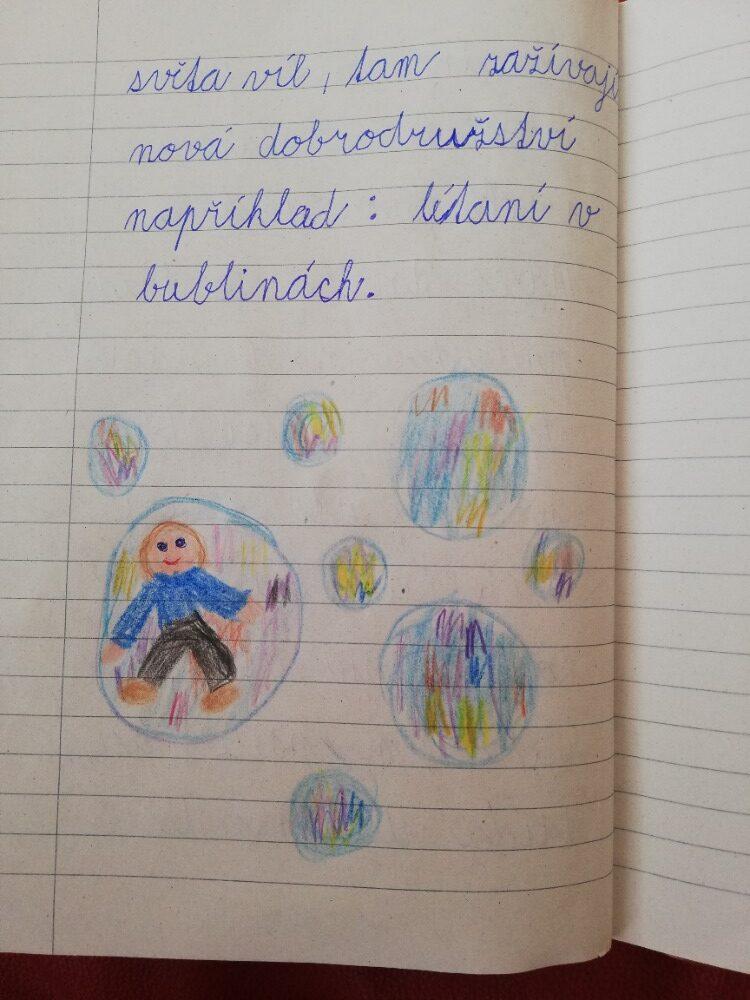 světa víl, tam zažívají
nová dobrodružství
například: létaní v
bublinách.